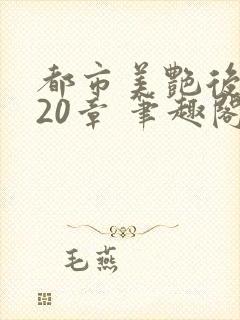 都市美艷後
20章 筆趣閣
毛燕